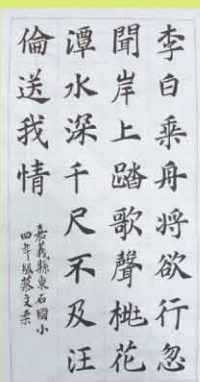 李白乘舟將欲行忽
聞岸上踏歌聲桃花
潭水深千尺不及汪
倫送我情
嘉義縣東石國小
四年級蔡文柔